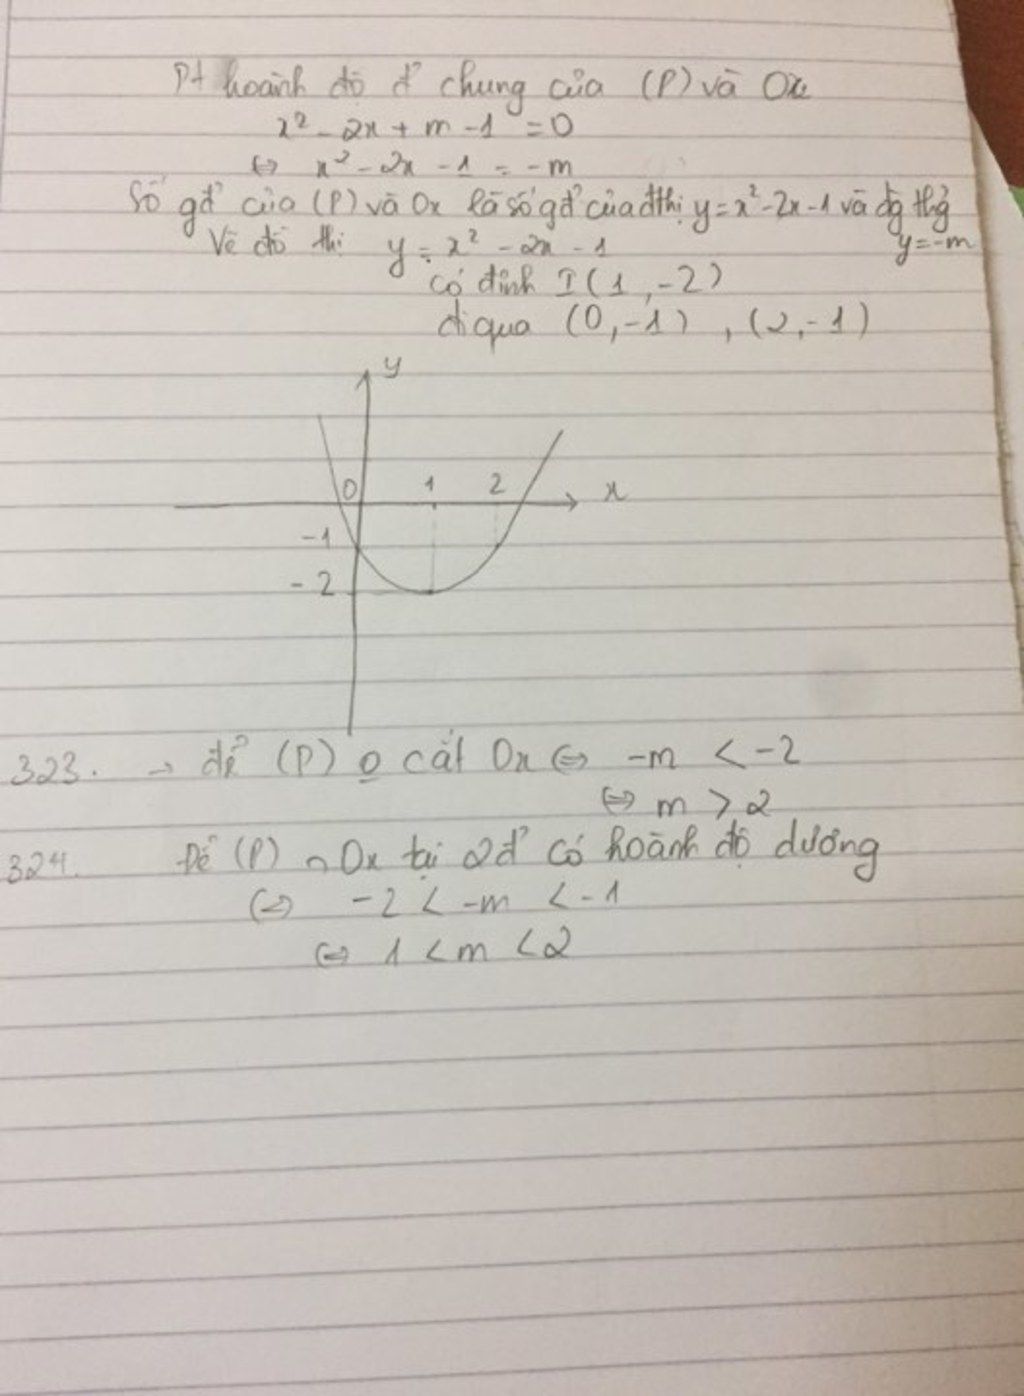 Pt hoành độ đ' chung của (P) và Ox
x² - 2x + m - 1 = 0
⇔ x² - 2x - 1 = -m
Số gđ' của (P) và Ox là số gđ' của đthị y = x² - 2x - 1 và đg thg̉ y = -m
Vẽ đồ thị y = x² - 2x - 1
có đỉnh I(1, -2)
đi qua (0, -1), (2, -1)
y
0 1 2 x
-1
-2
323. → để (P) o̲ cắt Ox ⇔ -m < -2
⇔ m > 2
324. Để (P) ∩ Ox tại 2đ' có hoành độ dương
⇔ -2 < -m < -1
⇔ 1 < m < 2